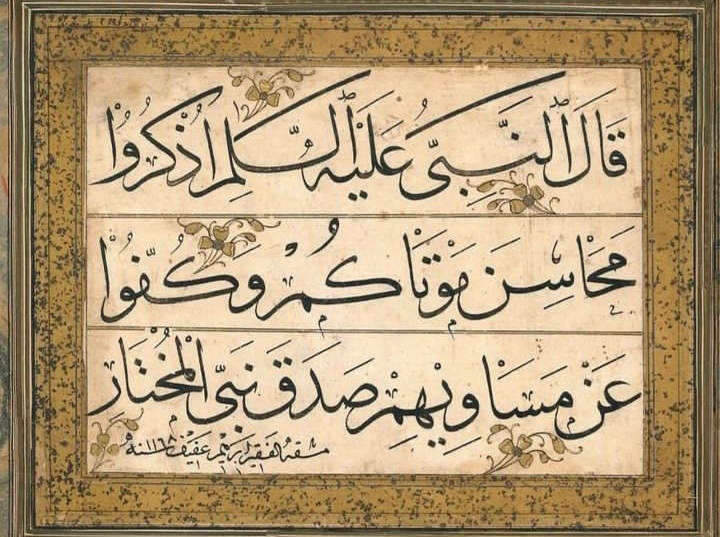 قَالَ النَّبِىُّ عَلَيْهِ السَّلَامِ اُذْكُرُوا
مَحَاسِنَ مَوْتَاكُمْ وَكُفُّوا
عَنْ مَسَاوِيهِمْ صَدَقَ نَبِىُّ الْمُخْتَار
مشقه الفقير ابرهيم عفيف سنه ١١٦٨